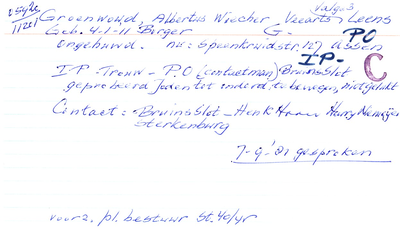 valg 3
Groenwoud, Albertus Wiecher, Vaearts Leens
11201
Geb. 4-1-11 Burger G. PO
ongehuwd. nu: Speenkruidstr. 127 Assen
IP - C
IP - Trouw - P.O (contactman) Bruins Slot
geprobeerd Joden tot onderd. te bewegen, niet gelukt
Contact: Bruins Slot - Henk Haan Harry
Sterkenburg
7-9-'81 gesproken
voorz. pl. bestuur St. 40/45